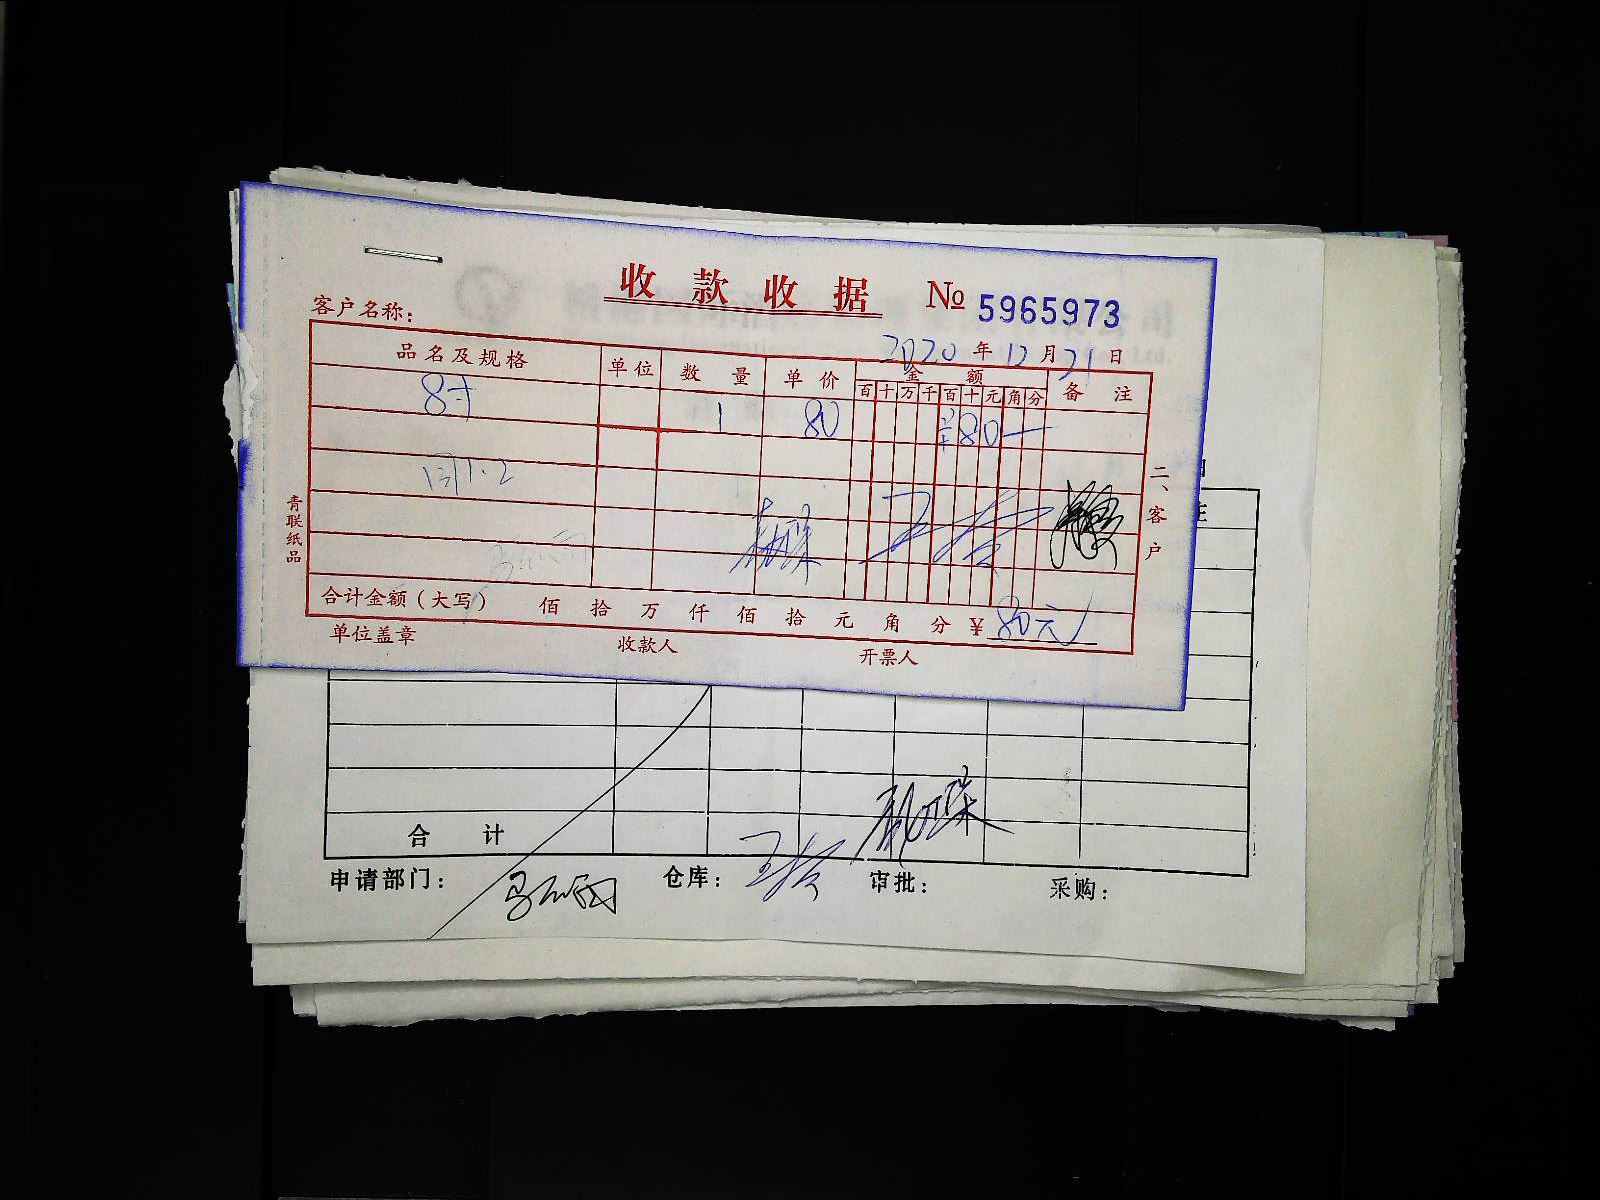 收款收据 № 5965973
客户名称：
2020年12月21日
品名及规格 单位 数量 单价 金额 备注
百 十 万 千 百 十 元 角 分
8寸 1 80 ¥80—
二、客户
青联纸品
合计金额（大写） 佰 拾 万 仟 佰 拾 元 角 分 ¥ 80元
单位盖章 收款人 开票人
合计
申请部门： 仓库： 审批： 采购：